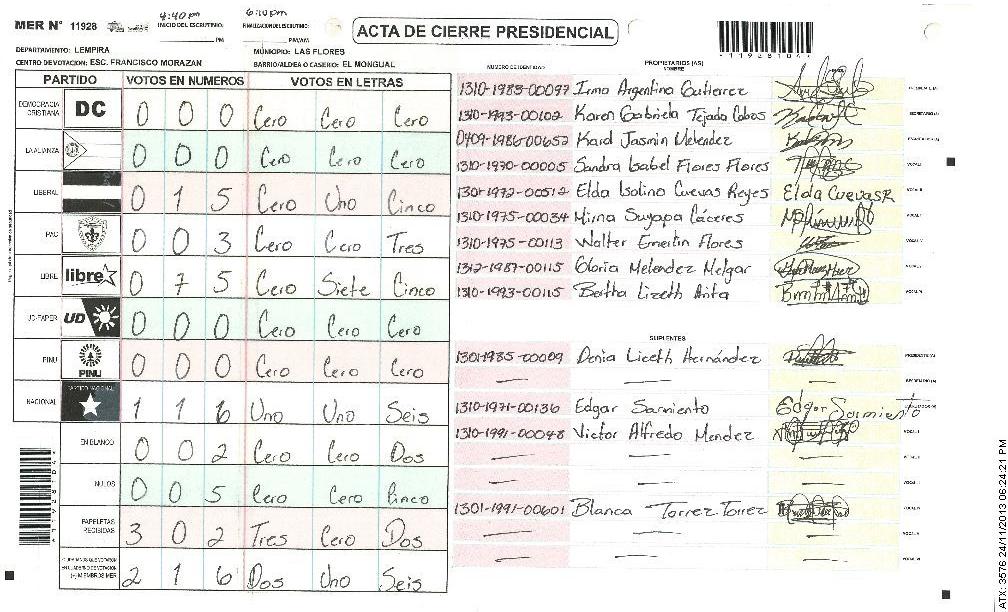 MER N° 11928
4:40 pm
INICIO DEL ESCRUTINIO:
PM
6:10 pm
FINALIZACION DEL ESCRUTINIO:
PM
ACTA DE CIERRE PRESIDENCIAL
-11928104-
DEPARTAMENTO: LEMPIRA
MUNICIPIO: LAS FLORES
CENTRO DE VOTACION: ESC. FRANCISCO MORAZAN
BARRIO/ALDEA O CASERIO: EL MONGUAL
PARTIDO VOTOS EN NUMEROS VOTOS EN LETRAS
DEMOCRACIA CRISTIANA DC 0 0 0 Cero Cero Cero
LA ALIANZA 0 0 0 Cero Cero Cero
LIBERAL 0 1 5 Cero Uno Cinco
PAC 0 0 3 Cero Cero Tres
LIBRE libre 0 7 5 Cero Siete Cinco
UD-FAPER UD 0 0 0 Cero Cero Cero
PINU PINU 0 0 0 Cero Cero Cero
NACIONAL PARTIDO NACIONAL 1 1 6 Uno Uno Seis
EN BLANCO 0 0 2 Cero Cero Dos
NULOS 0 0 5 Cero Cero Cinco
PAPELETAS RECIBIDAS 3 0 2 Tres Cero Dos
CIUDADANOS QUE VOTARON EN CUADERNO DE VOTACION (+) MIEMBROS MER 2 1 6 Dos Uno Seis
NUMERO DE IDENTIDAD PROPIETARIOS (AS) NOMBRE
1310-1983-00097 Irma Argentina Gutierrez
1310-1993-00102 Karen Gabriela Tejada Cobos
0409-1986-00652 Karol Jasmin Melendez
1310-1970-00005 Sandra Isabel Flores Flores
1301-1972-00512 Elda Isolina Cuevas Reyes Elda Cuevas R
1310-1975-00034 Mirna Suyapa Cáceres
1310-1975-00113 Walter Emerlin Flores
1312-1987-00115 Gloria Melendez Melgar
1310-1993-00115 Bertha Lizeth Anita
SUPLENTES
1301-1985-00009 Denia Liceth Hernández
1310-1971-00136 Edgar Sarmiento Edgar Sarmiento
1310-1991-00048 Victor Alfredo Mendez
1301-1991-00601 Blanca Torrez Torrez
ATX: 3576 24/11/2013 06:24:21 PM